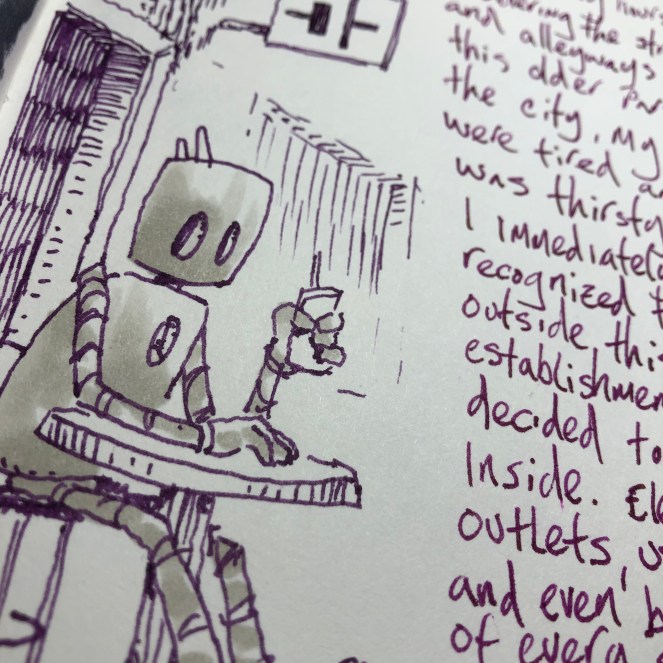 and alleyways
this older
the city. My
were tired
was thirsty
I immediatel
recognized
outside this
establishmen
decided to
Inside.
outlets,
and even
of every